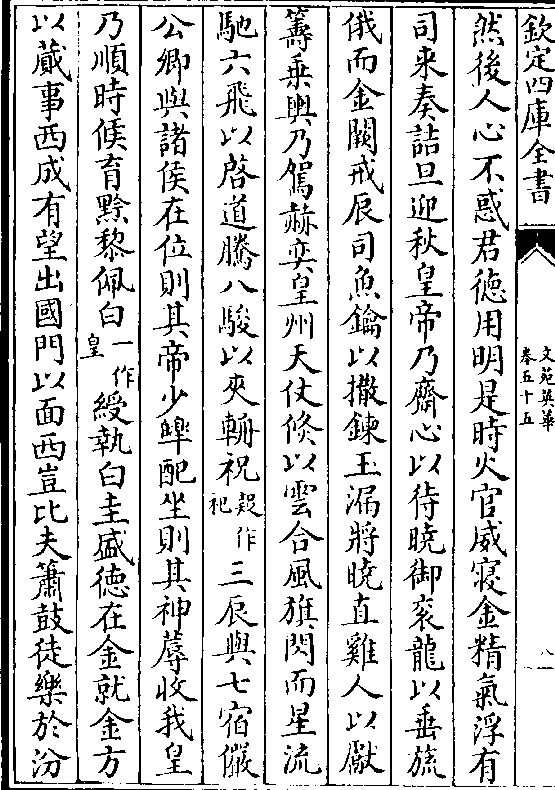 欽定四庫全書
文苑英華
卷五十五
八
然後人心不惑君德用明是時火官威寢金精氣浮有
司来奏詰旦迎秋皇帝乃齋心以待曉御衮龍以垂旒
俄而金闕戒辰司魚鑰以撒鍊玉漏將曉直雞人以獻
籌乗輿乃駕赫奕皇州天仗倏以雲合風旗閃而星流
馳六飛以啓道騰八駿以夾輈祝疑作祀三辰與七宿儼
公卿與諸侯在位則其帝少皥配坐則其神蓐收我皇
乃順時候育黔黎佩白一作皇綬執白圭盛德在金就金方
以蕆事西成有望出國門以面西豈比夫簫鼓徒樂於汾